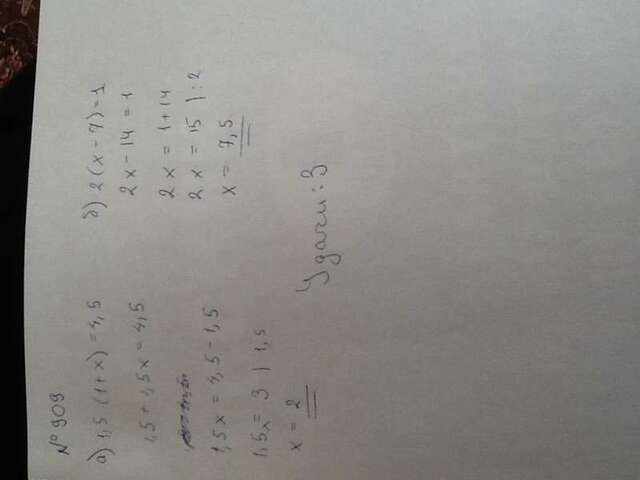 № 909
а) 1,5 (1+x) = 4,5
1,5 + 1,5x = 4,5
1,5x = 4,5 - 1,5
1,5x = 3 | 1,5
x = 2
б) 2(x-7) = 1
2x - 14 = 1
2x = 1 + 14
2x = 15 | : 2
x = 7,5
Удачи :3